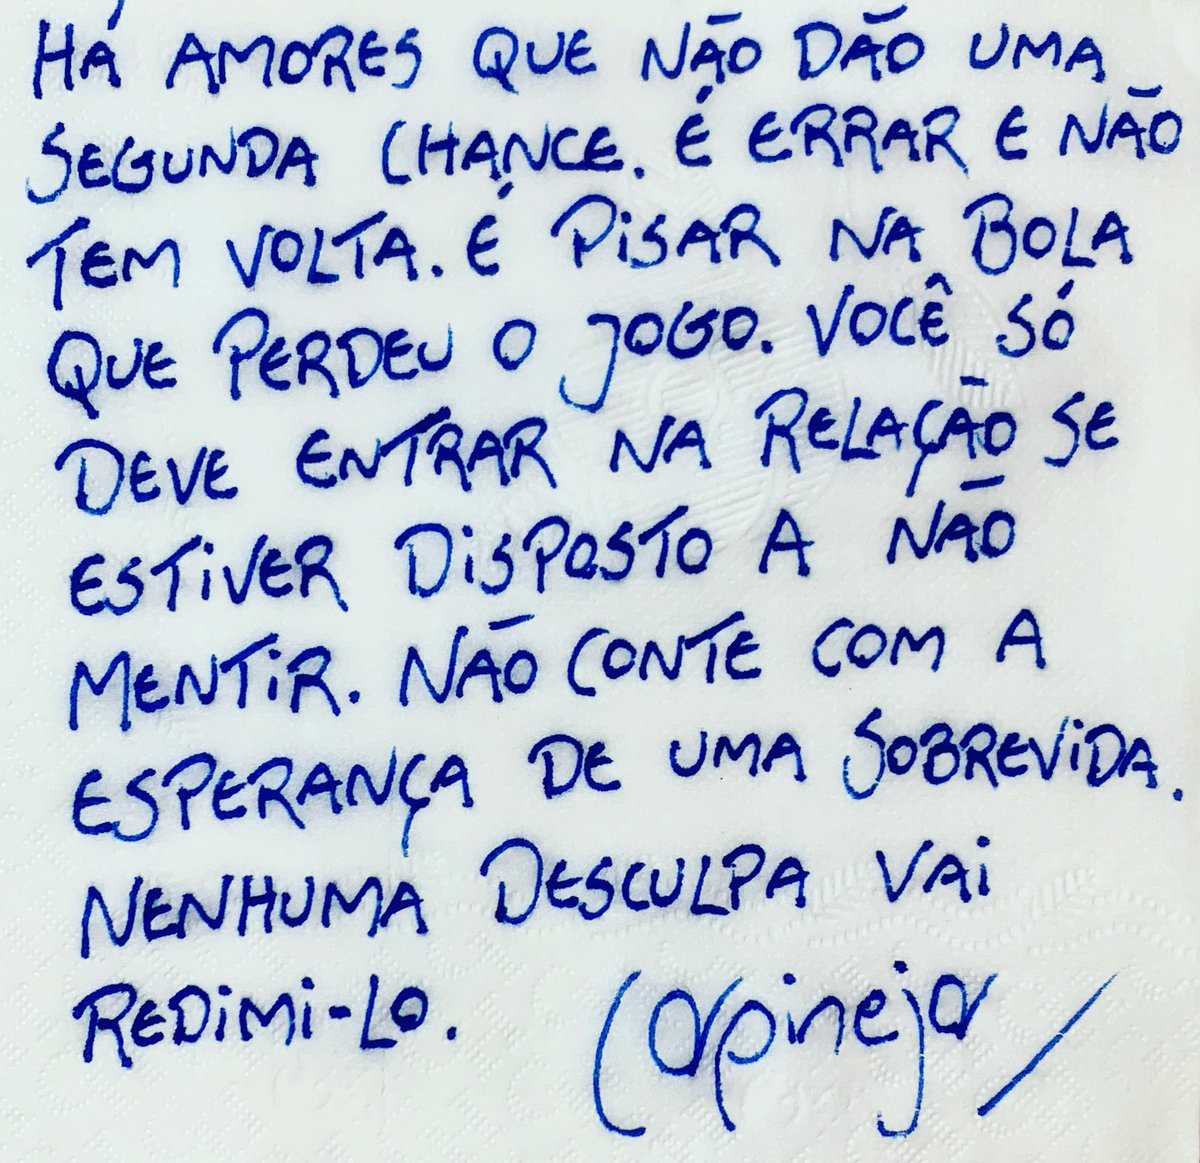 HÁ AMORES QUE NÃO DÃO UMA
SEGUNDA CHANCE. É ERRAR E NÃO
TEM VOLTA. É PISAR NA BOLA
QUE PERDEU O JOGO. VOCÊ SÓ
DEVE ENTRAR NA RELAÇÃO SE
ESTIVER DISPOSTO A NÃO
MENTIR. NÃO CONTE COM A
ESPERANÇA DE UMA SOBREVIDA.
NENHUMA DESCULPA VAI
REDIMI-LO. Carpinejar